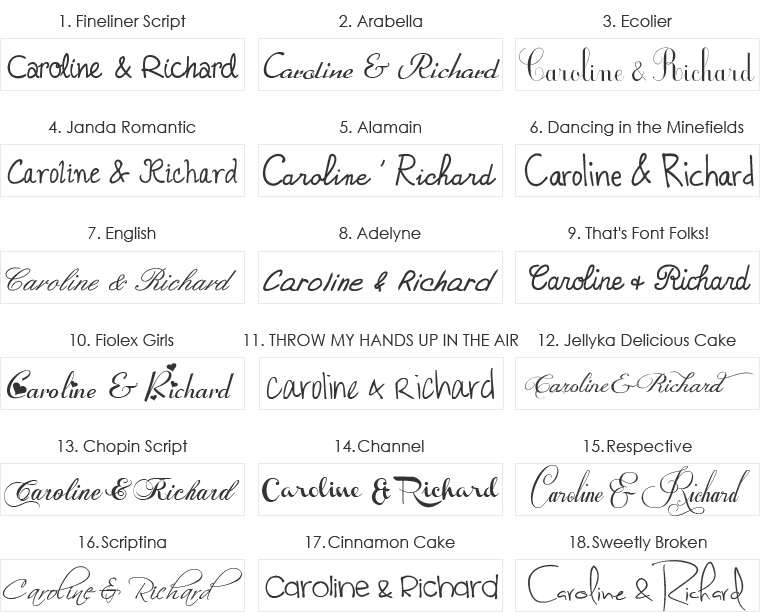 1. Fineliner Script
Caroline & Richard
2. Arabella
Caroline & Richard
3. Ecolier
Caroline & Richard
4. Janda Romantic
Caroline & Richard
5. Alamain
Caroline ' Richard
6. Dancing in the Minefields
Caroline & Richard
7. English
Caroline & Richard
8. Adelyne
Caroline & Richard
9. That's Font Folks!
Caroline + Richard
10. Fiolex Girls
Caroline & Richard
11. THROW MY HANDS UP IN THE AIR
Caroline & Richard
12. Jellyka Delicious Cake
Caroline & Richard
13. Chopin Script
Caroline & Richard
14.Channel
Caroline & Richard
15.Respective
Caroline & Richard
16.Scriptina
Caroline & Richard
17.Cinnamon Cake
Caroline & Richard
18.Sweetly Broken
Caroline & Richard